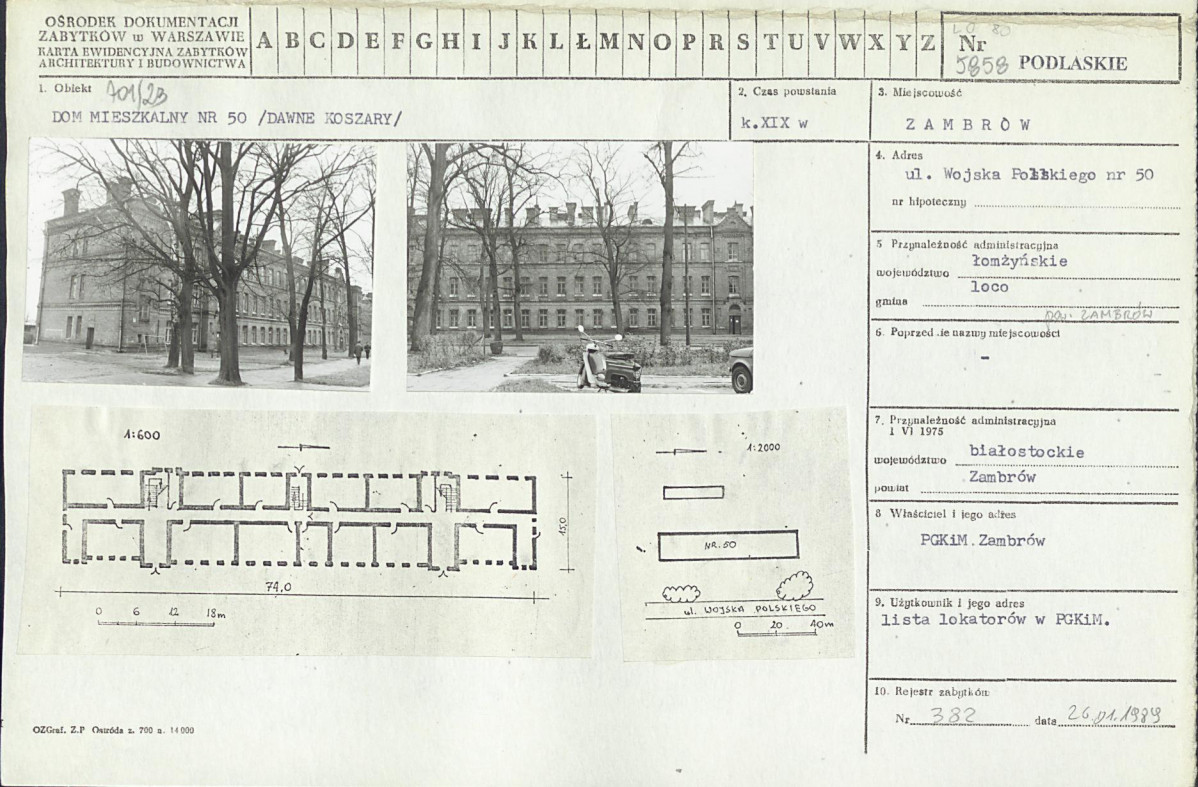 OŚRODEK DOKUMENTACJI
ZABYTKÓW w WARSZAWIE
KARTA EWIDENCYJNA ZABYTKÓW
ARCHITEKTURY I BUDOWNICTWA
A B C D E F G H I J K L Ł M N O P R S T U V W X Y Z
LO 80
Nr
5858 PODLASKIE
1. Obiekt 701/23
DOM MIESZKALNY NR 50 /DAWNE KOSZARY/
2. Czas powstania
k.XIX w
3. Miejscowość
ZAMBRÓW
4. Adres
ul. Wojska Polskiego nr 50
nr hipoteczny
5 Przynależność administracyjna
łomżyńskie
województwo
loco
gmina
pow. ZAMBRÓW
6. Poprzednie nazwy miejscowości
-
7. Przynależność administracyjna
1 VI 1975
białostockie
województwo
Zambrów
powiat
8 Właściciel i jego adres
PGKiM.Zambrów
9. Użytkownik i jego adres
lista lokatorów w PGKiM.
10. Rejestr zabytków
Nr 382 data 26.01.1989
1:600
15,0
74,0
0 6 12 18m
1:2000
NR.50
ul. WOJSKA POLSKIEGO
0 20 40m
OZGraf. Z.P Ostróda z. 700 n. 14000